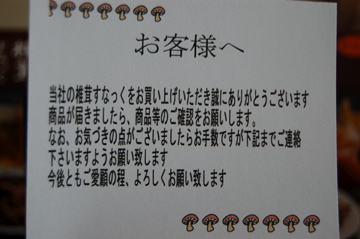 お客様へ
当社の椎茸すなっくをお買い上げいただき誠にありがとうございます
商品が届きましたら、商品等のご確認をお願いします。
なお、お気づきの点がございましたらお手数ですが下記までご連絡
下さいますようお願い致します
今後ともご愛顧の程、よろしくお願い致します